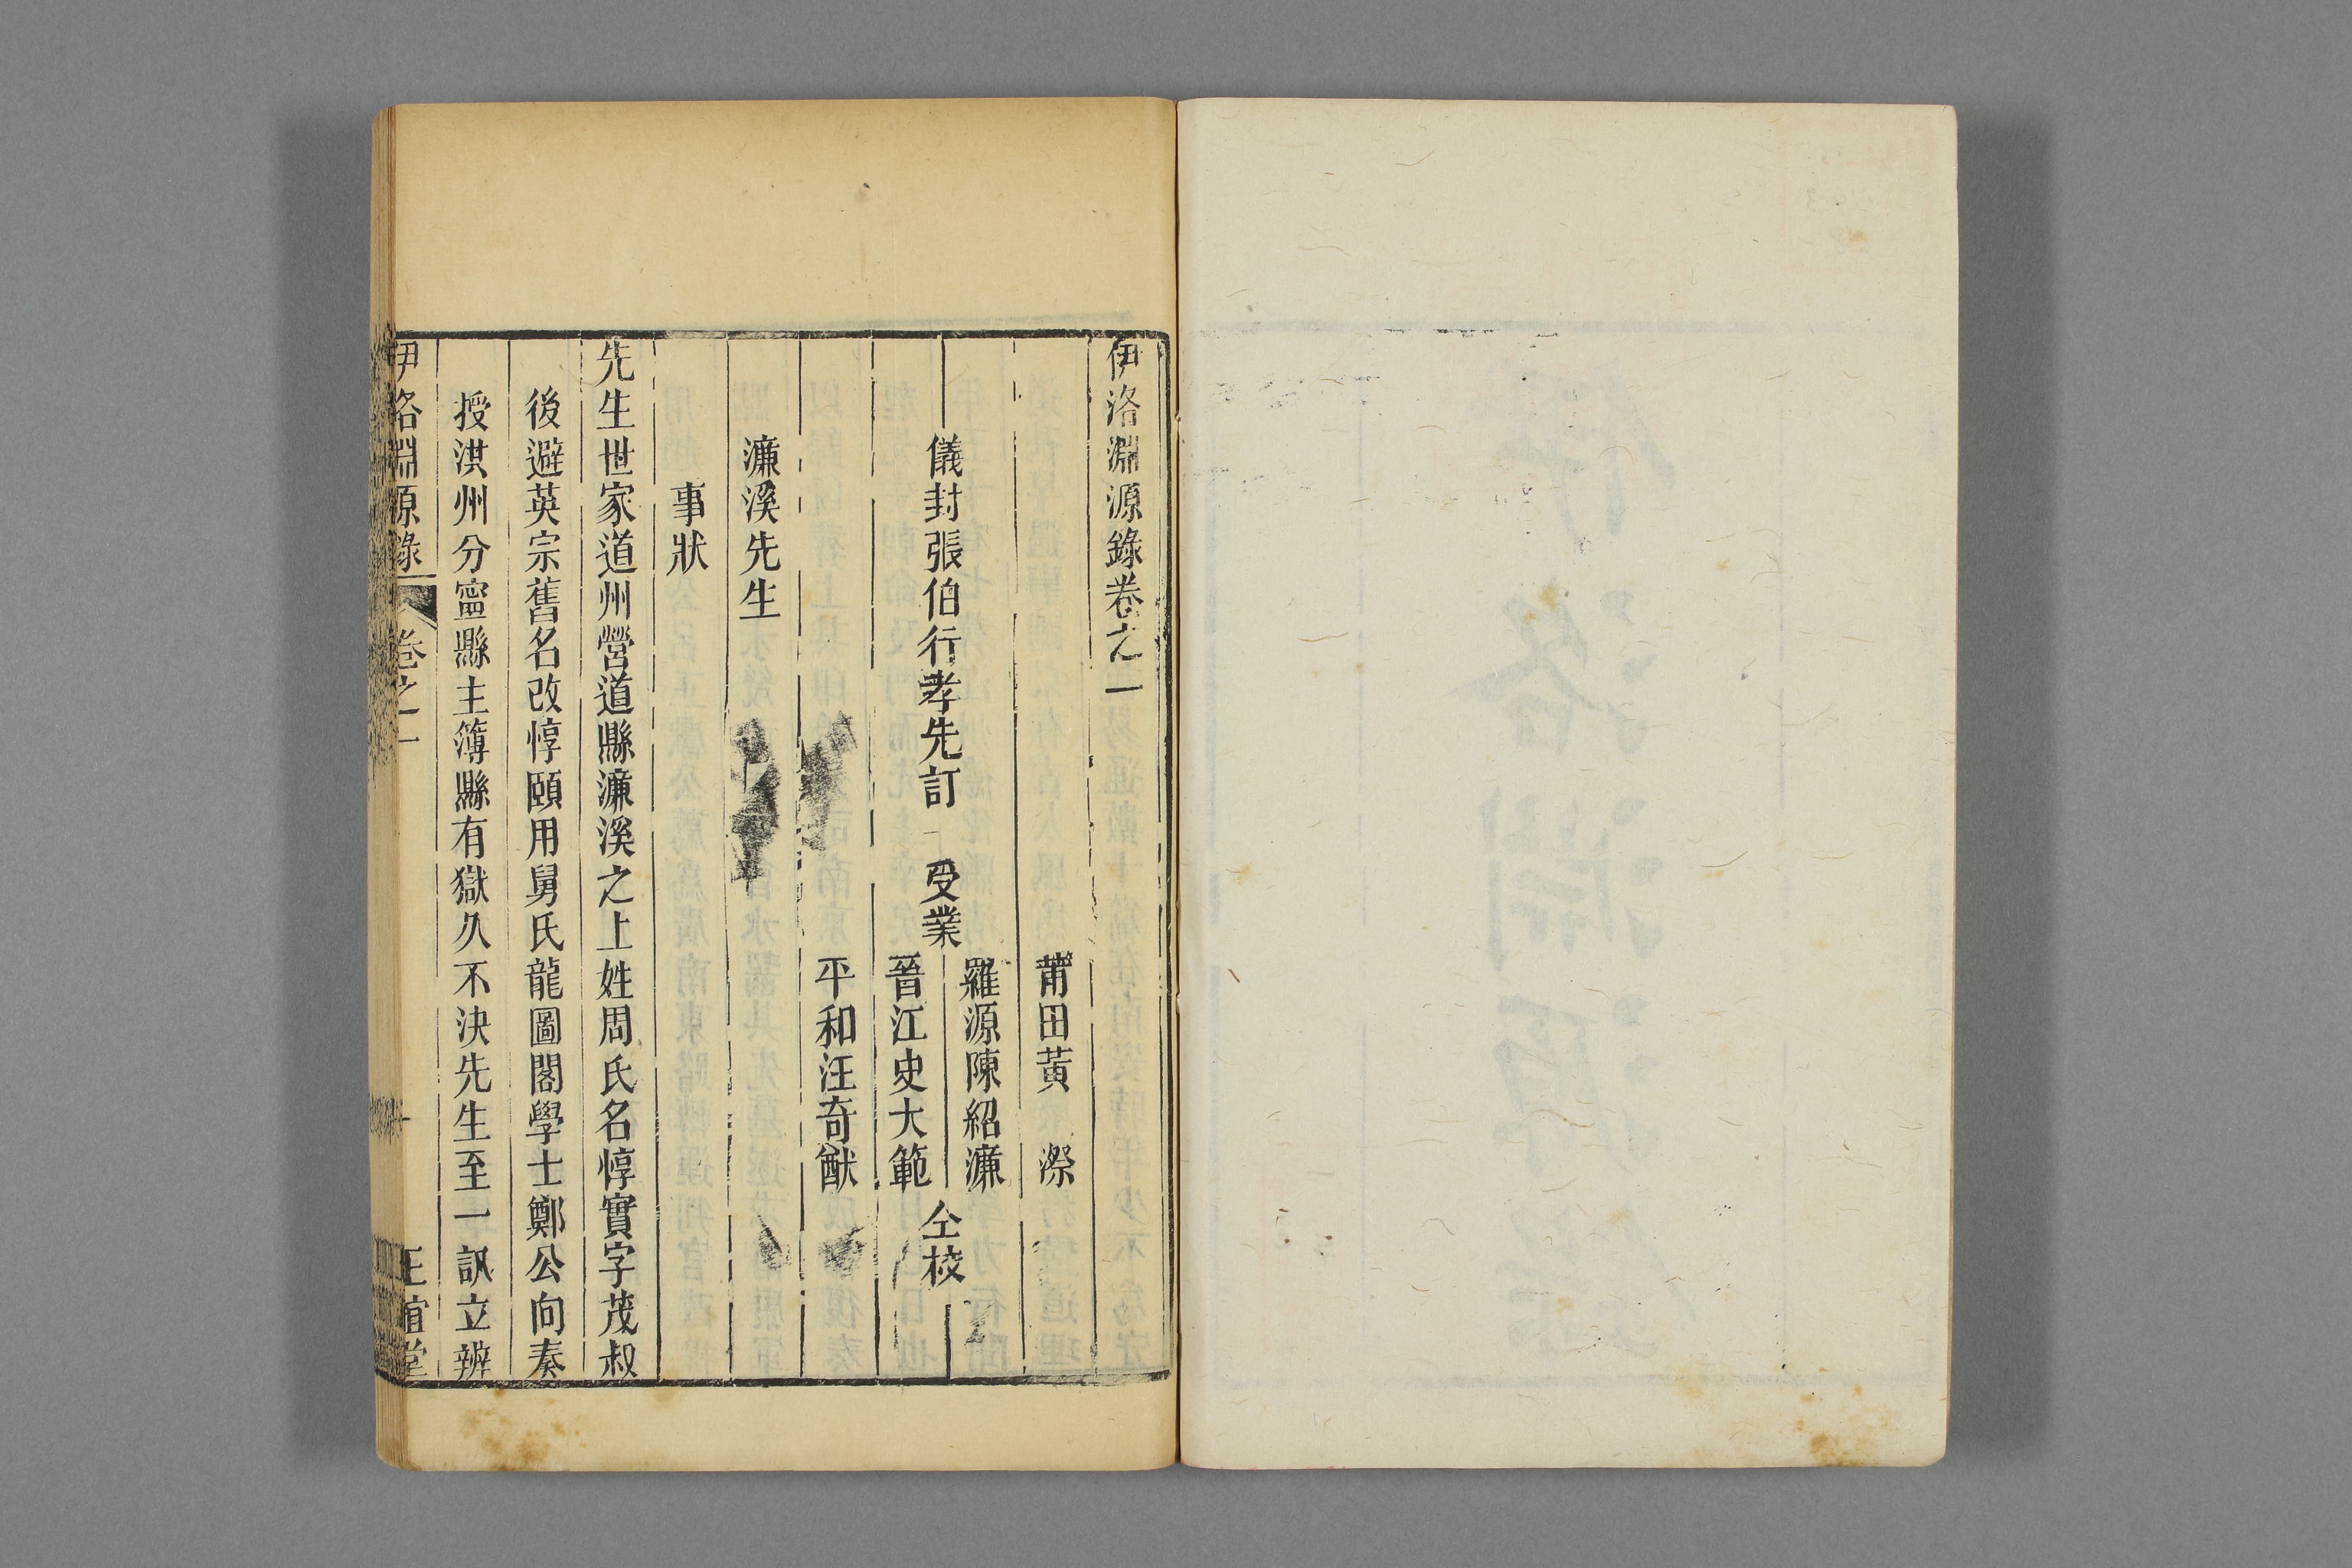 伊洛淵源錄卷之一
莆田黃 漈
羅源陳紹濂
儀封張伯行孝先訂 受業 仝校
晉江史大範
平和汪奇猷
濂溪先生
事狀
先生世家道州營道縣濂溪之上姓周氏名惇實字茂叔
後避英宗舊名改惇頤用舅氏龍圖閣學士鄭公向奏
授洪州分寧縣主簿縣有獄久不決先生至一訊立辨
伊洛淵源錄 卷之一 正誼堂